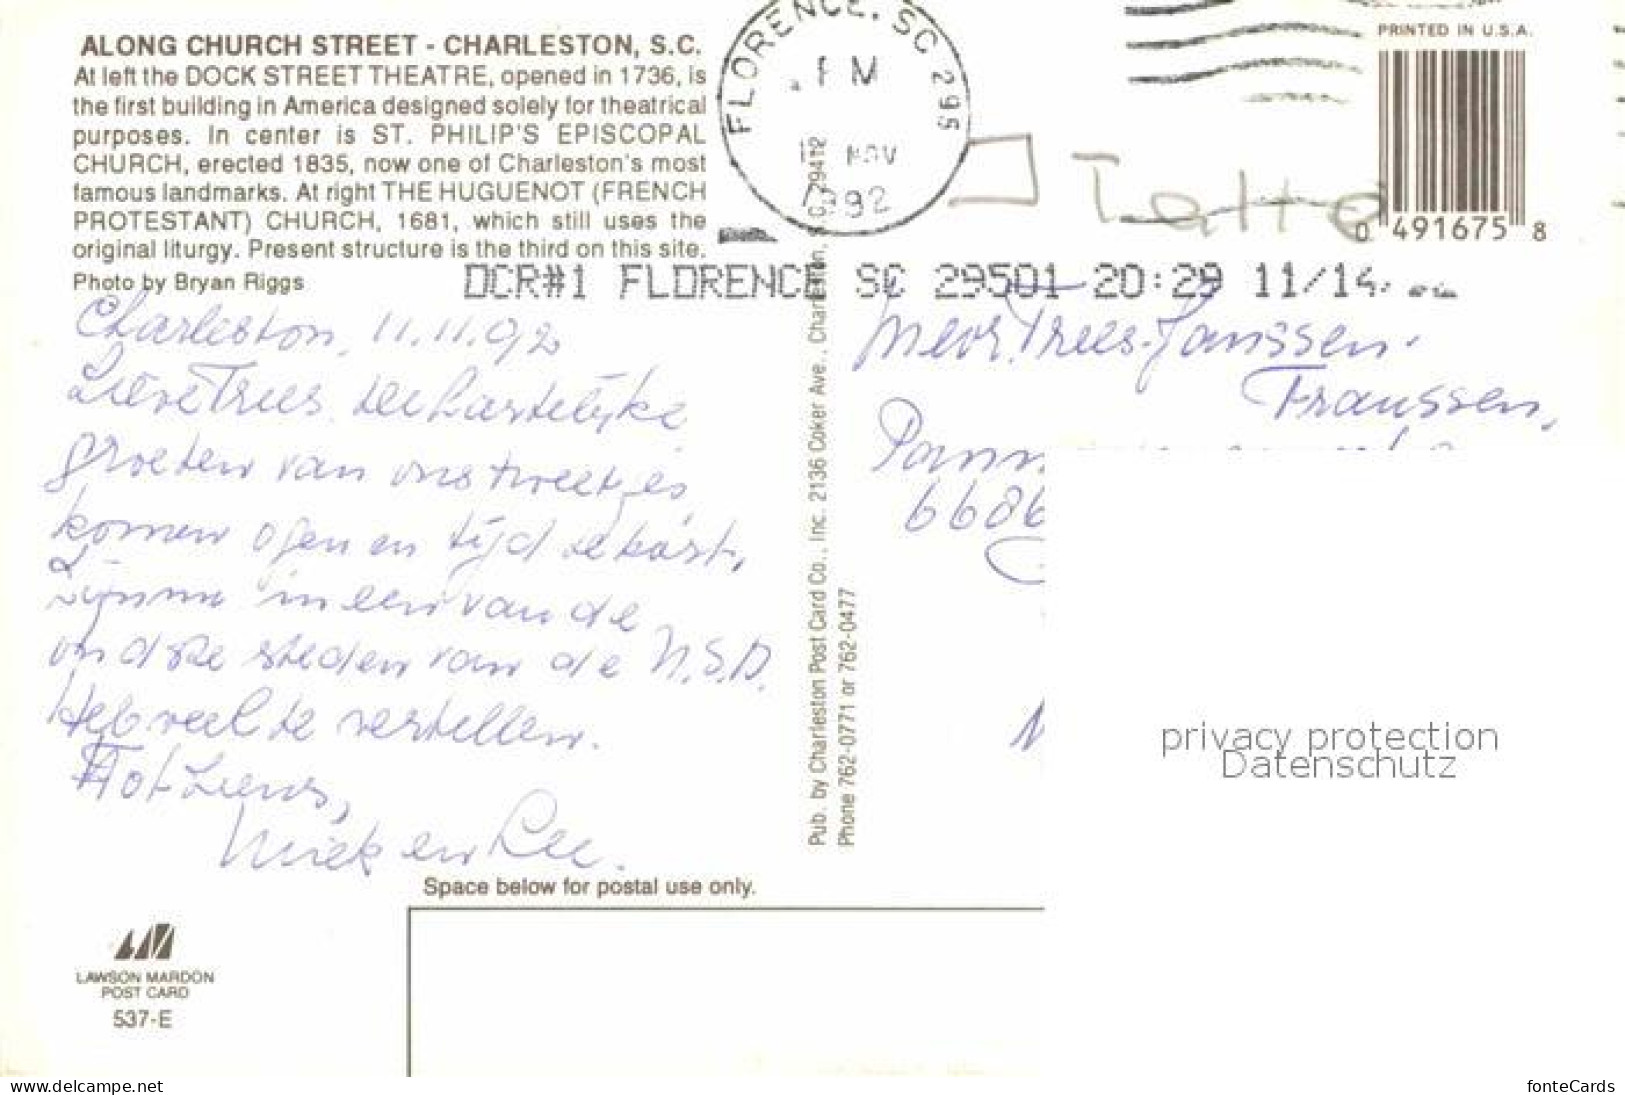 ALONG CHURCH STREET - CHARLESTON, S.C.
At left the DOCK STREET THEATRE, opened in 1736, is
the first building in America designed solely for theatrical
purposes. In center is ST. PHILIP'S EPISCOPAL
CHURCH, erected 1835, now one of Charleston's most
famous landmarks. At right THE HUGUENOT (FRENCH
PROTESTANT) CHURCH, 1681, which still uses the
original liturgy. Present structure is the third on this site.
Photo by Bryan Riggs
FLORENCE, SC 295
PM
12 NOV
1992
PRINTED IN U.S.A.
0 491675 8
DCR#1 FLORENCE SC 29501 20:29 11/14
Charleston, 11.11.92
Lieve Trees. de hartelijke
groeten van ons tweetjes,
komen ogen en tijd te kort,
zijn in een van de
oudste steden van de U.S.A.
Heb veel te vertellen.
Tot ziens,
Miek en Lee.
Mevr. Trees-Janssen-
Franssen,
6686
Pub. by Charleston Post Card Co., Inc. 2136 Coker Ave., Charleston, S.C. 29412
Phone 762-0771 or 762-0477
privacy protection
Datenschutz
Space below for postal use only.
LAWSON MARDON
POST CARD
537-E
www.delcampe.net
fonteCards